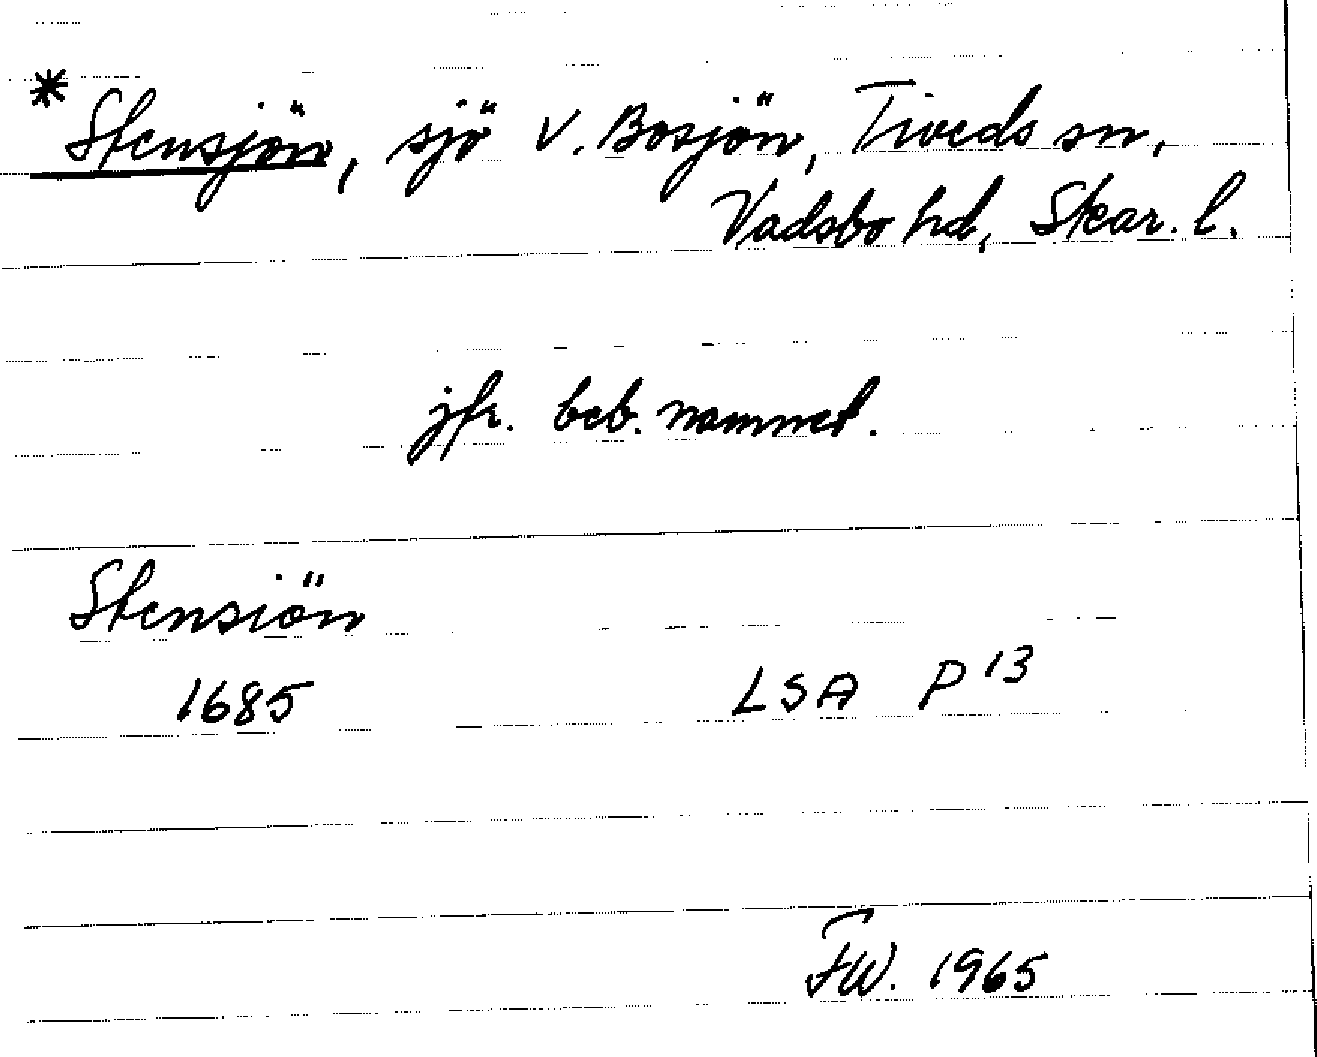 * Stensjön, sjö V. Bosjön, Tiveds sn,
Vadsbo hd, Skar. l.
jfr. beb. namnet.
Stensiön
1685 LSA P 13
FW. 1965